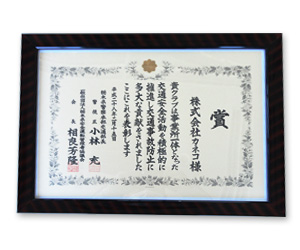 賞
株式会社カネコ様
貴クラブは事業所一体となった
交通安全活動を積極的に
推進し交通事故防止に
多大な貢献をされました
ここにこれを表彰します
平成二十八年二月十五日
栃木県警察本部交通部長
警視正 小林 充
会長 相良芳隆